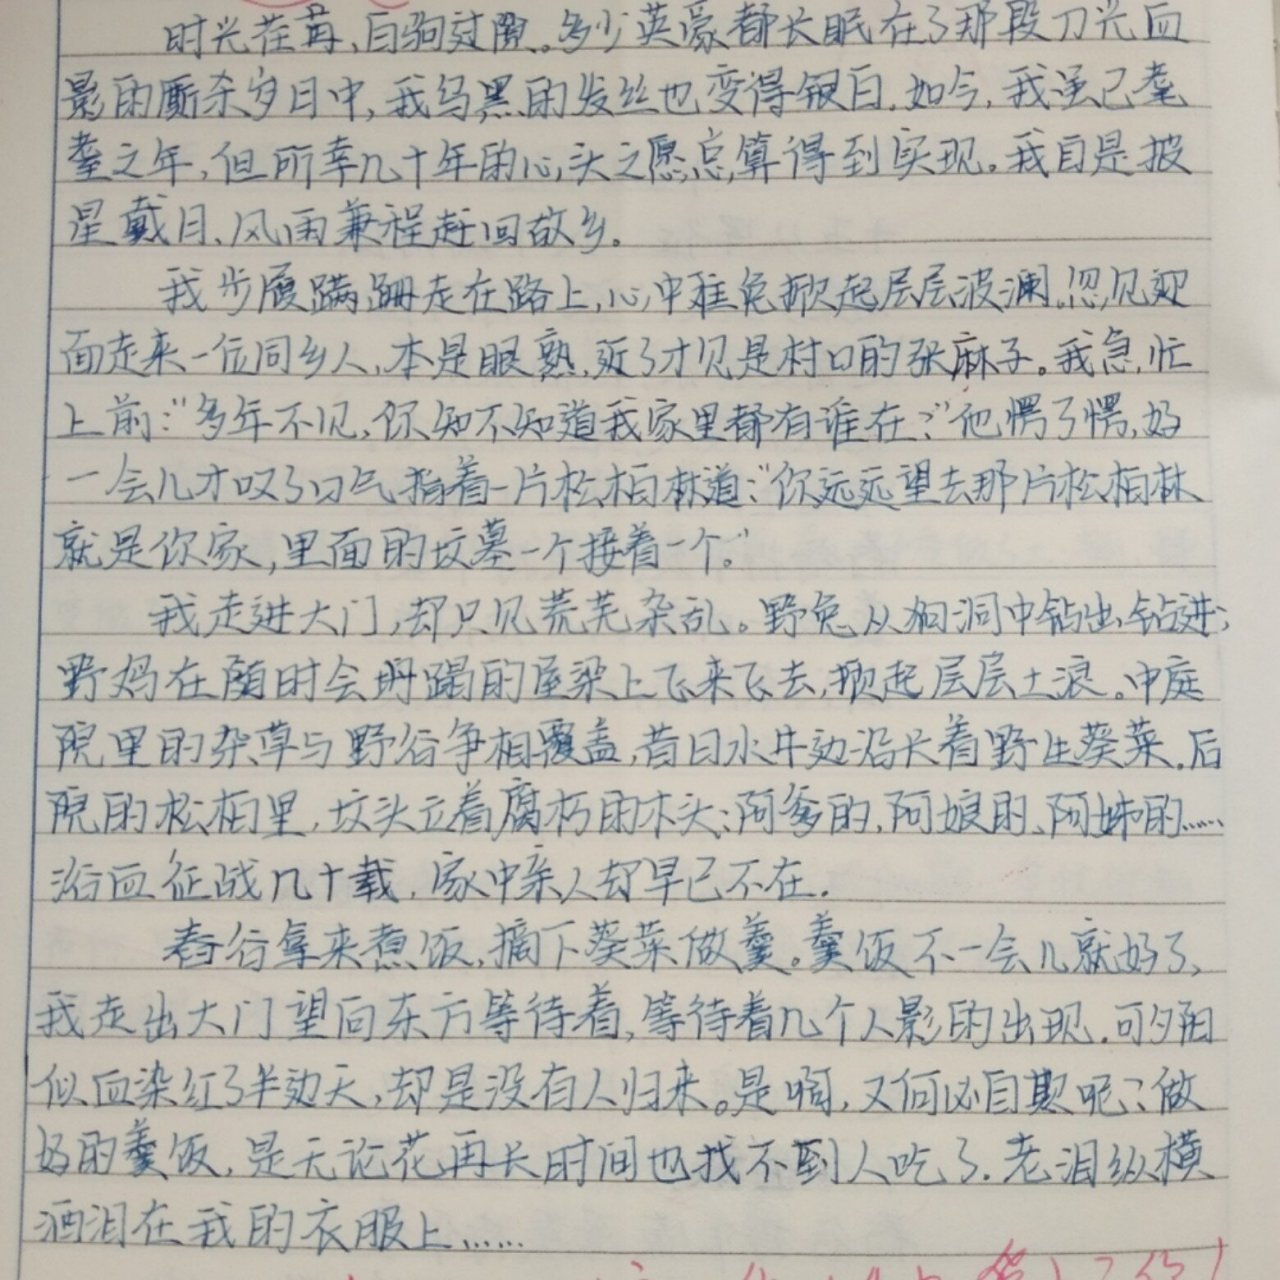 时光荏苒、白驹过隙。多少英豪都长眠在了那段刀光血
影的厮杀岁日中,我乌黑的发丝也变得银白.如今,我虽已耄
耋之年,但所幸几十年的心头之愿总算得到实现。我自是披
星戴月、风雨兼程赶回故乡。
我步履蹒跚走在路上,心中难免掀起层层波澜.忽见迎
面走来一位同乡人,本是眼熟,近了才见是村口的张麻子。我急忙
上前:“多年不见,你知不知道我家里都有谁在?”他愣了愣,好
一会儿才叹了口气指着一片松柏林道:“你远远望去那片松柏林
就是你家,里面的坟墓一个接着一个。”
我走进大门,却只见荒芜杂乱。野兔从狗洞中钻出钻进;
野鸡在随时会坍蹋的屋梁上飞来飞去,掀起层层土浪。中庭
院里的杂草与野谷争相覆盖,昔日水井边沿长着野生葵菜.后
院的松柏里,坟头立着腐朽的木头:阿爹的,阿娘的、阿姊的……
浴血征战几十载,家中亲人却早已不在.
舂谷拿来煮饭,摘下葵菜做羹。羹饭不一会儿就好了,
我走出大门望向东方等待着,等待着几个人影的出现.可夕阳
似血染红了半边天,却是没有人归来。是啊,又何必自欺呢?做
好的羹饭,是无论花再长时间也找不到人吃了.老泪纵横
洒泪在我的衣服上……